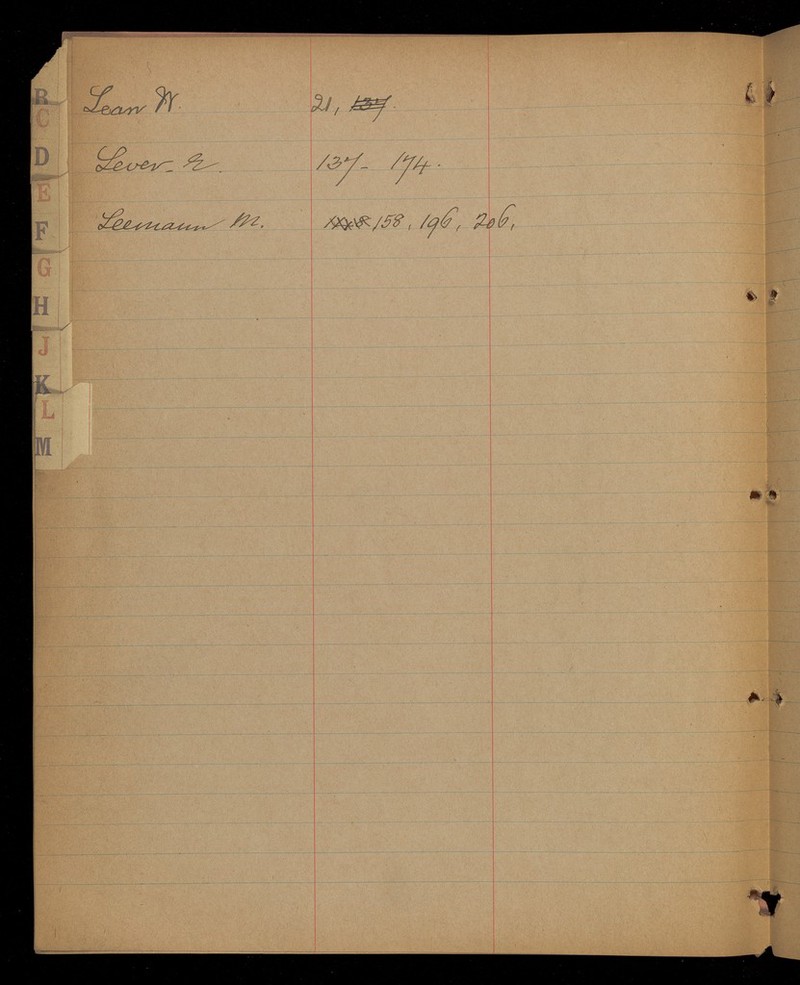 Lean W. 21, 137.
Lever. E. 137 - 174.
Leemann M. 158, 196, 206,
B
C
D
E
F
G
H
J
K
L
M